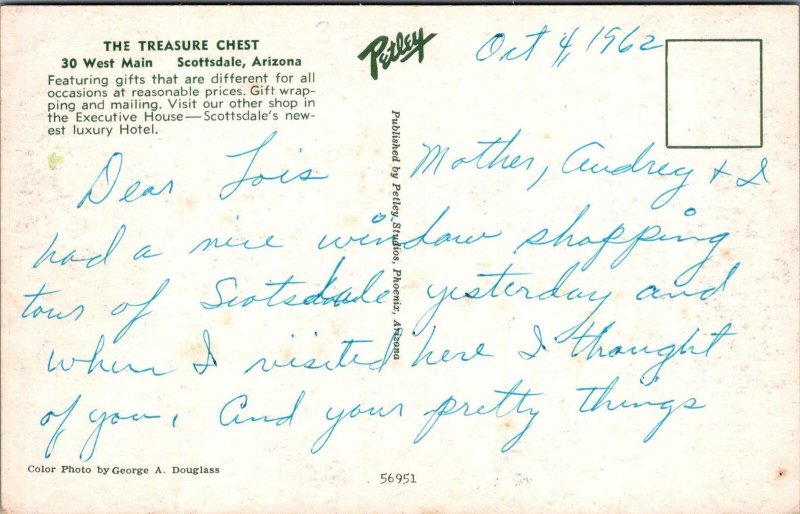 THE TREASURE CHEST
30 West Main Scottsdale, Arizona
Featuring gifts that are different for all
occasions at reasonable prices. Gift wrap-
ping and mailing. Visit our other shop in
the Executive House—Scottsdale's new-
est luxury Hotel.
Petley
Oct 4, 1962
Published by Petley Studios, Phoenix, Arizona
Dear Lois Mother, Audrey + I
had a nice window shopping
tour of Scotsdale yesterday and
when I visited here I thought
of you. And your pretty things
Color Photo by George A. Douglass
56951